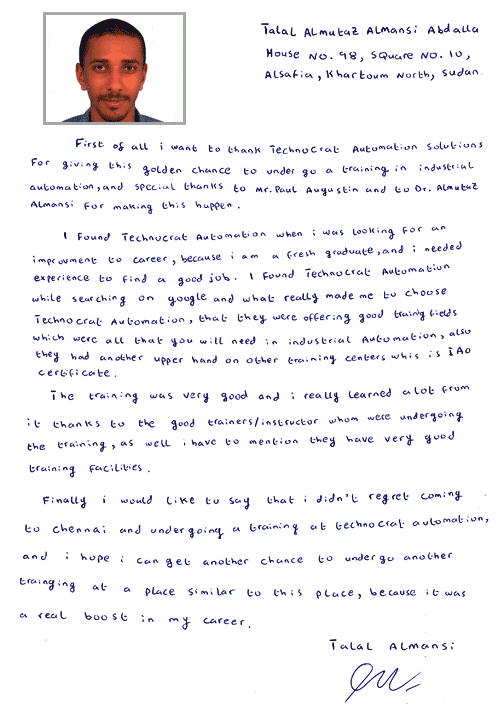 Talal Almutaz Almansi Abdalla
House No. 98, Square No. 10,
Alsafia, Khartoum North, Sudan.
First of all i want to thank Technocrat Automation Solutions
For giving this golden chance to under go a training in industrial
automation, and special thanks to Mr. Paul Augustin and to Dr. Almutaz
Almansi for making this happen.
I Found Technocrat Automation when i was looking for an
improvment to career, because i am a fresh graduate, and i needed
experience to find a good job. I found Technocrat Automation
while searching on google and what really made me to choose
Technocrat Automation, that they were offering good trainig fields
which were all that you will need in industrial Automation, also
they had another upper hand on other training centers whis is IAO
certificate.
The training was very good and i really learned alot from
it thanks to the good trainers/instructor whom were undergoing
the training, as well i have to mention they have very good
training facilities.
Finally i would like to say that i didn't regret coming
to chennai and undergoing a training at technocrat automation,
and i hope i can get another chance to under go another
trainging at a place similar to this place, because it was
a real boost in my career.
Talal Almansi